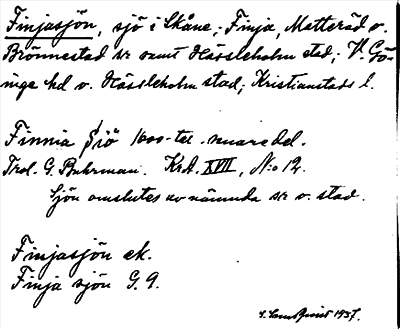 Finjasjön, sjö i Skåne; Finja, Matteröd o.
Brönnestad sn samt Hässleholm stad; V. Gö-
inge hd o. Hässleholm stad; Kristianstads l.
Finnia Siö 1600-tal. senare del.
Trol. G. Buhrman. Krt. XVII, N:o 12.
Sjön omslutes av nämnda sn o. stad.
Finjasjön ek.
Finja sjön G. 9.
1937.